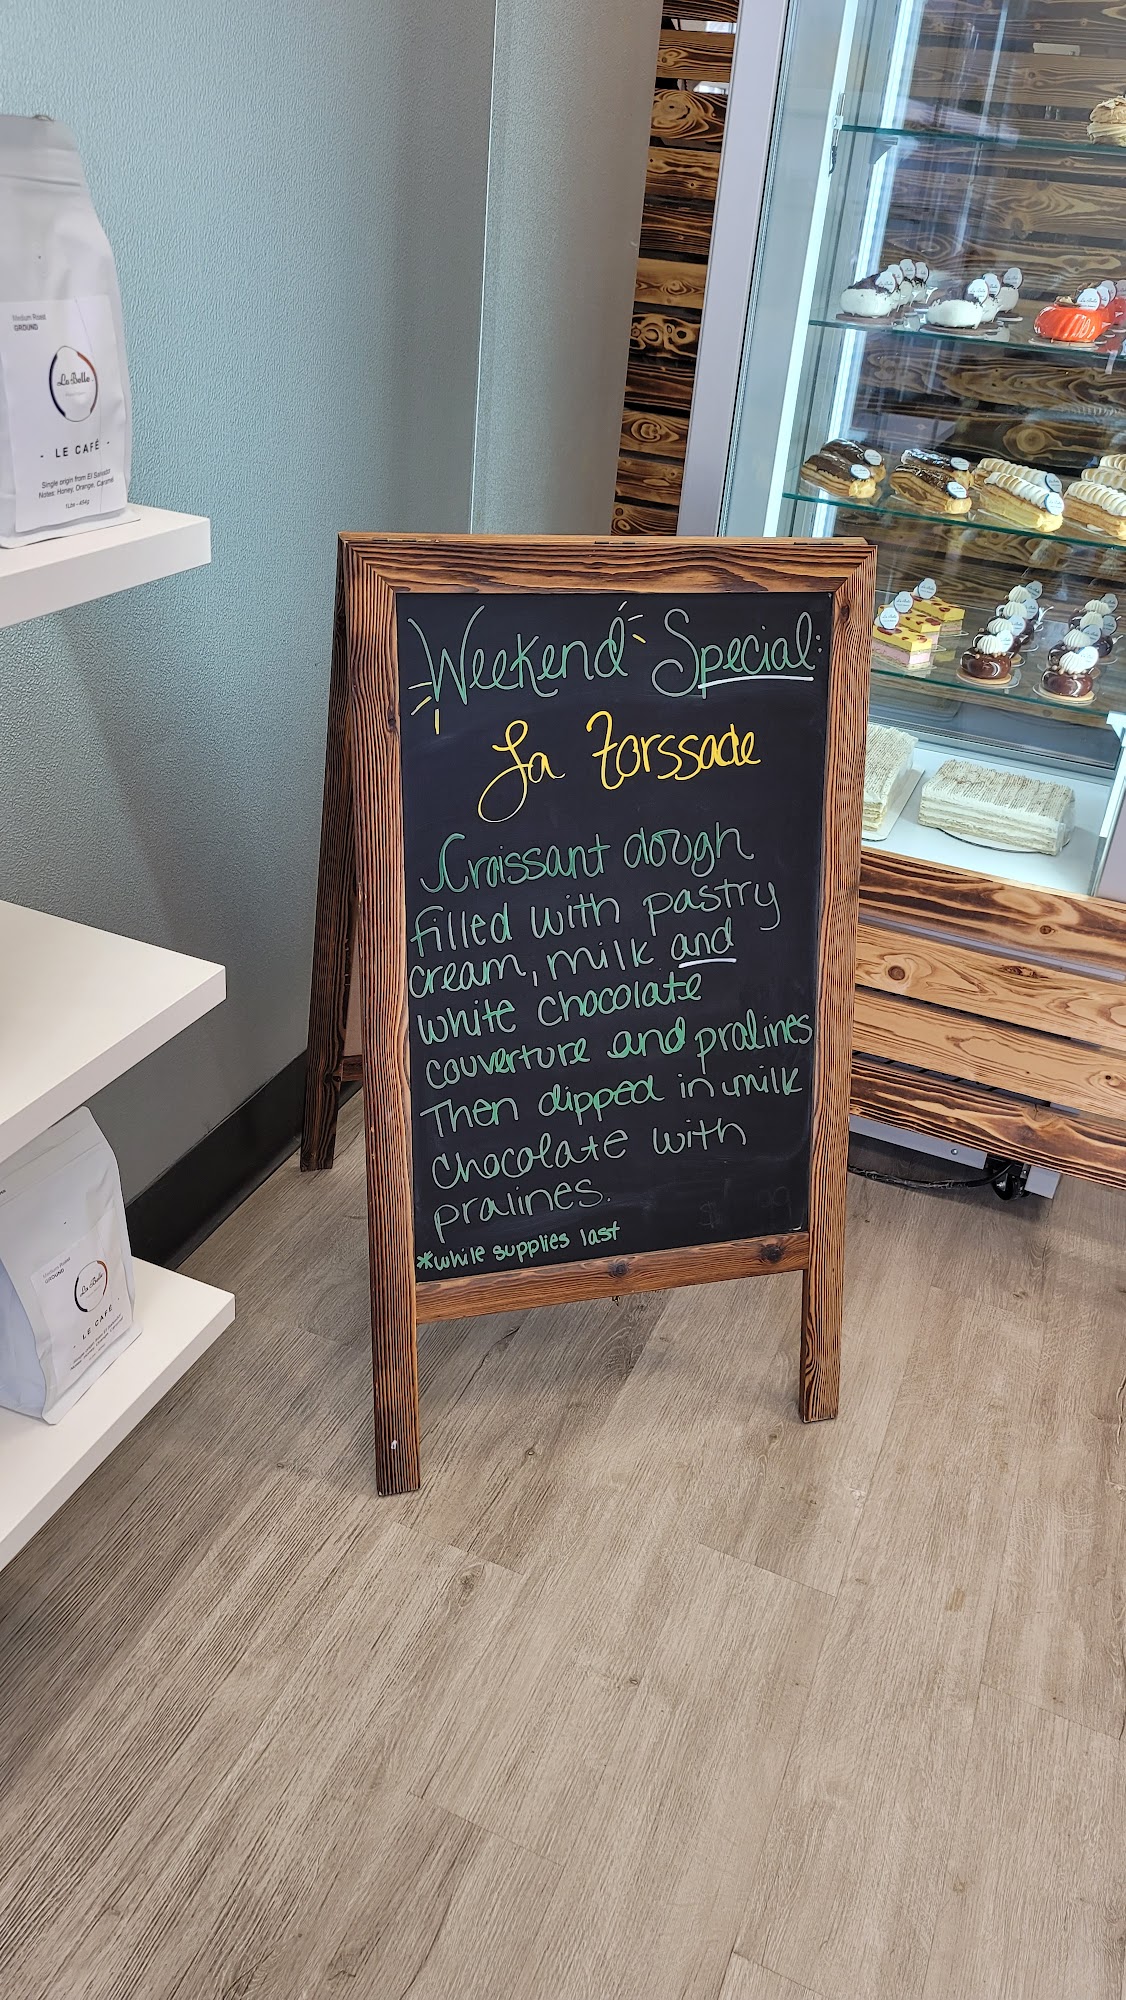 Medium Roast
GROUND
La Belle
- LE CAFÉ -
Single origin from El Salvador
Notes: Honey, Orange, Caramel
Weekend Special:
La Torssade
Croissant dough
filled with pastry
cream, milk and
white chocolate
couverture and pralines
Then dipped in milk
chocolate with
pralines.
*while supplies last
Medium Roast
GROUND
La Belle
LE CAFÉ